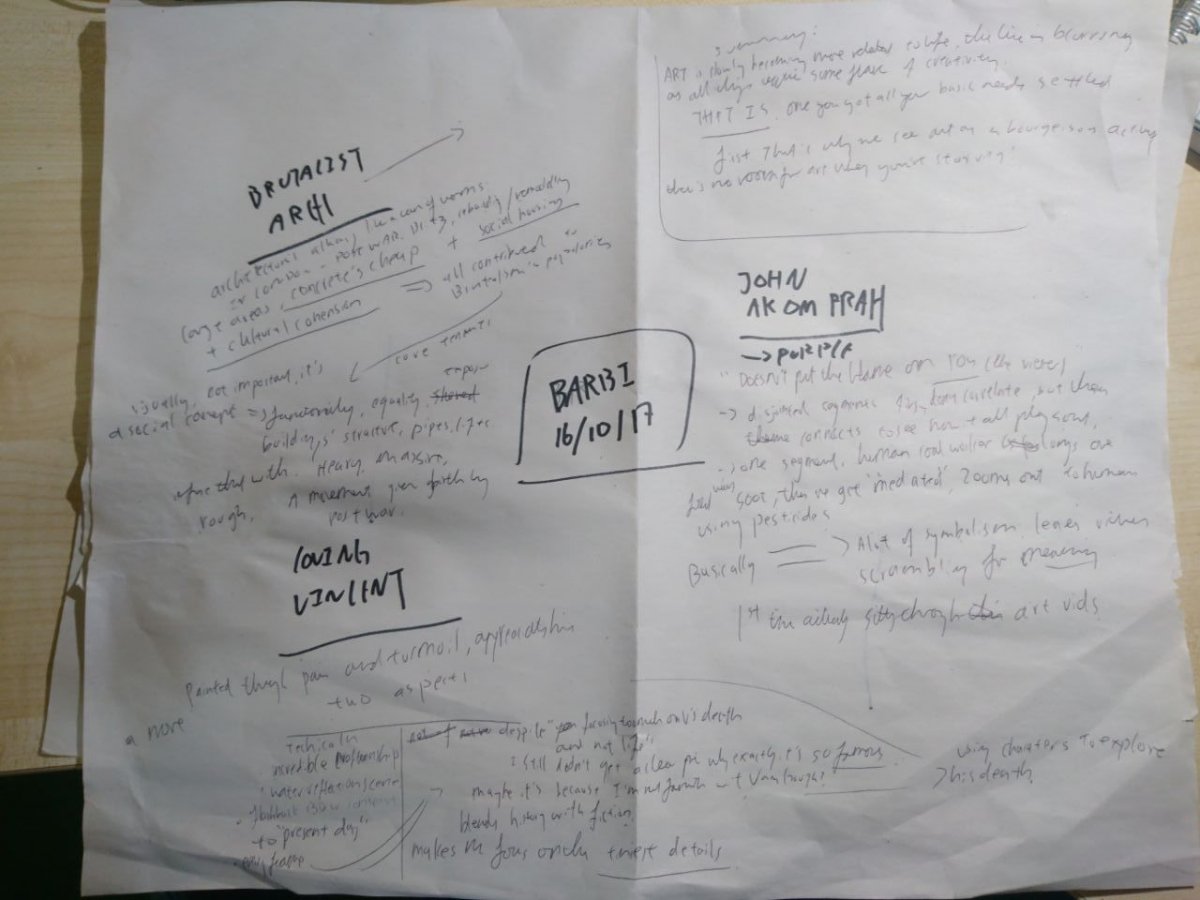 BARBI
16/10/17
summary:
ART is slowly becoming more related to life, the line is blurring
as all things require some of creativity.
THAT IS, once you got all your basic needs settled
first. That's why we see art as a activity
there's no room for art when you're starving!
BRUTALIST
ARHI
architectural like a can of worms
in London - post WAR. rebuilding/remodelling
large areas, concrete's cheap + social housing
+ cultural cohension => all contributed to
Brutalism's
core tenants
visually not important, it's
a social concept => functionality, equality, expose
buildings' structure, pipes,
with. Heavy, massive,
rough. A movement given by
post war.
JOHN
AKOMFRAH
-> PURPLE
"Doesn't put the blame on YOU (the viewer)"
-> disjointed segments correlate, but then
theme connects to see how it all plays out,
-> one segment, human coal worker lungs are
soot, then we get 'mediated', zooms out to human
using pesticides
Basically => A lot of symbolism leaves viewer
scrambling for meaning
1st time sitting through art vids
LOVING
VINCENT
painted through pain and turmoil,
two aspects
a more
technical
incredible
water reflection scene
flashback B&W
to "present day"
every frame
despite focusing too much on V's death
and not life"
I still didn't get a clear pic why exactly it's so famous
maybe it's because I'm not familiar with Van Gogh?
blends history with fiction,
makes me focus on the tiniest details
using characters to explore
> his death,